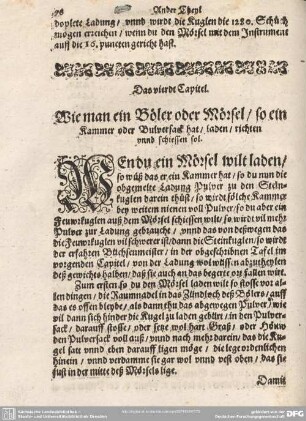 78 Ander Theyl
doplete Ladung / vnnd wirdt die Kuglen die 1280. Schůch
mögen erreichen / wenn du den Mörsel mit dem Instrument
auff die 16. puncten gericht hast.
Das vierdt Capitel.
Wie man ein Böler oder Mörsel / so ein
Kammer oder Pulversack hat / laden / richten
vnnd schiessen sol.
WEn du ein Mörsel wilt laden /
so wiß das er ein Kammer hat / so du nun die
obgemelte Ladung Pulver zu den Stein-
kuglen darein thůst / so wirdt solche Kammer
bey weitem nienen voll Pulver / so du aber ein
Feuwrkuglen auß dem Mörsel schiessen wilt / so wirdt vil mehr
Pulver zur Ladung gebraucht / vnnd das von deßwegen das
die Feuwrkuglen vil schwerer ist / dann die Steinkuglen / so wirdt
der erfahrten Büchsenmeister / in der obgeschribnen Tafel im
vorgenden Capitel / von der Ladung wol wissen abzutheylen
deß gewichts halben / daß sie auch an das begerte ort fallen wirt.
Zum ersten so du den Mörsel laden wilt so stosse vor al-
len dingen / die Raumnadel in das Zündloch deß Bölers / auff
das es offen bleybe / als dann thu das abgewegen Pulver / wie
vil dann sich hinder die Kugel zu laden gebürt / in den Pulver-
sack / darauff stosse / oder setze wol hart Graß / oder Höuw
den Pulversack voll auß / vnnd nach mehr darein / das die Ku-
gel satt vnnd eben darauff ligen möge / die lege ordenlichen
hinein / vnnd verdamme sie gar wol vnnd vest oben / das sie
just in der mitte deß Mörsels lige.
Damit